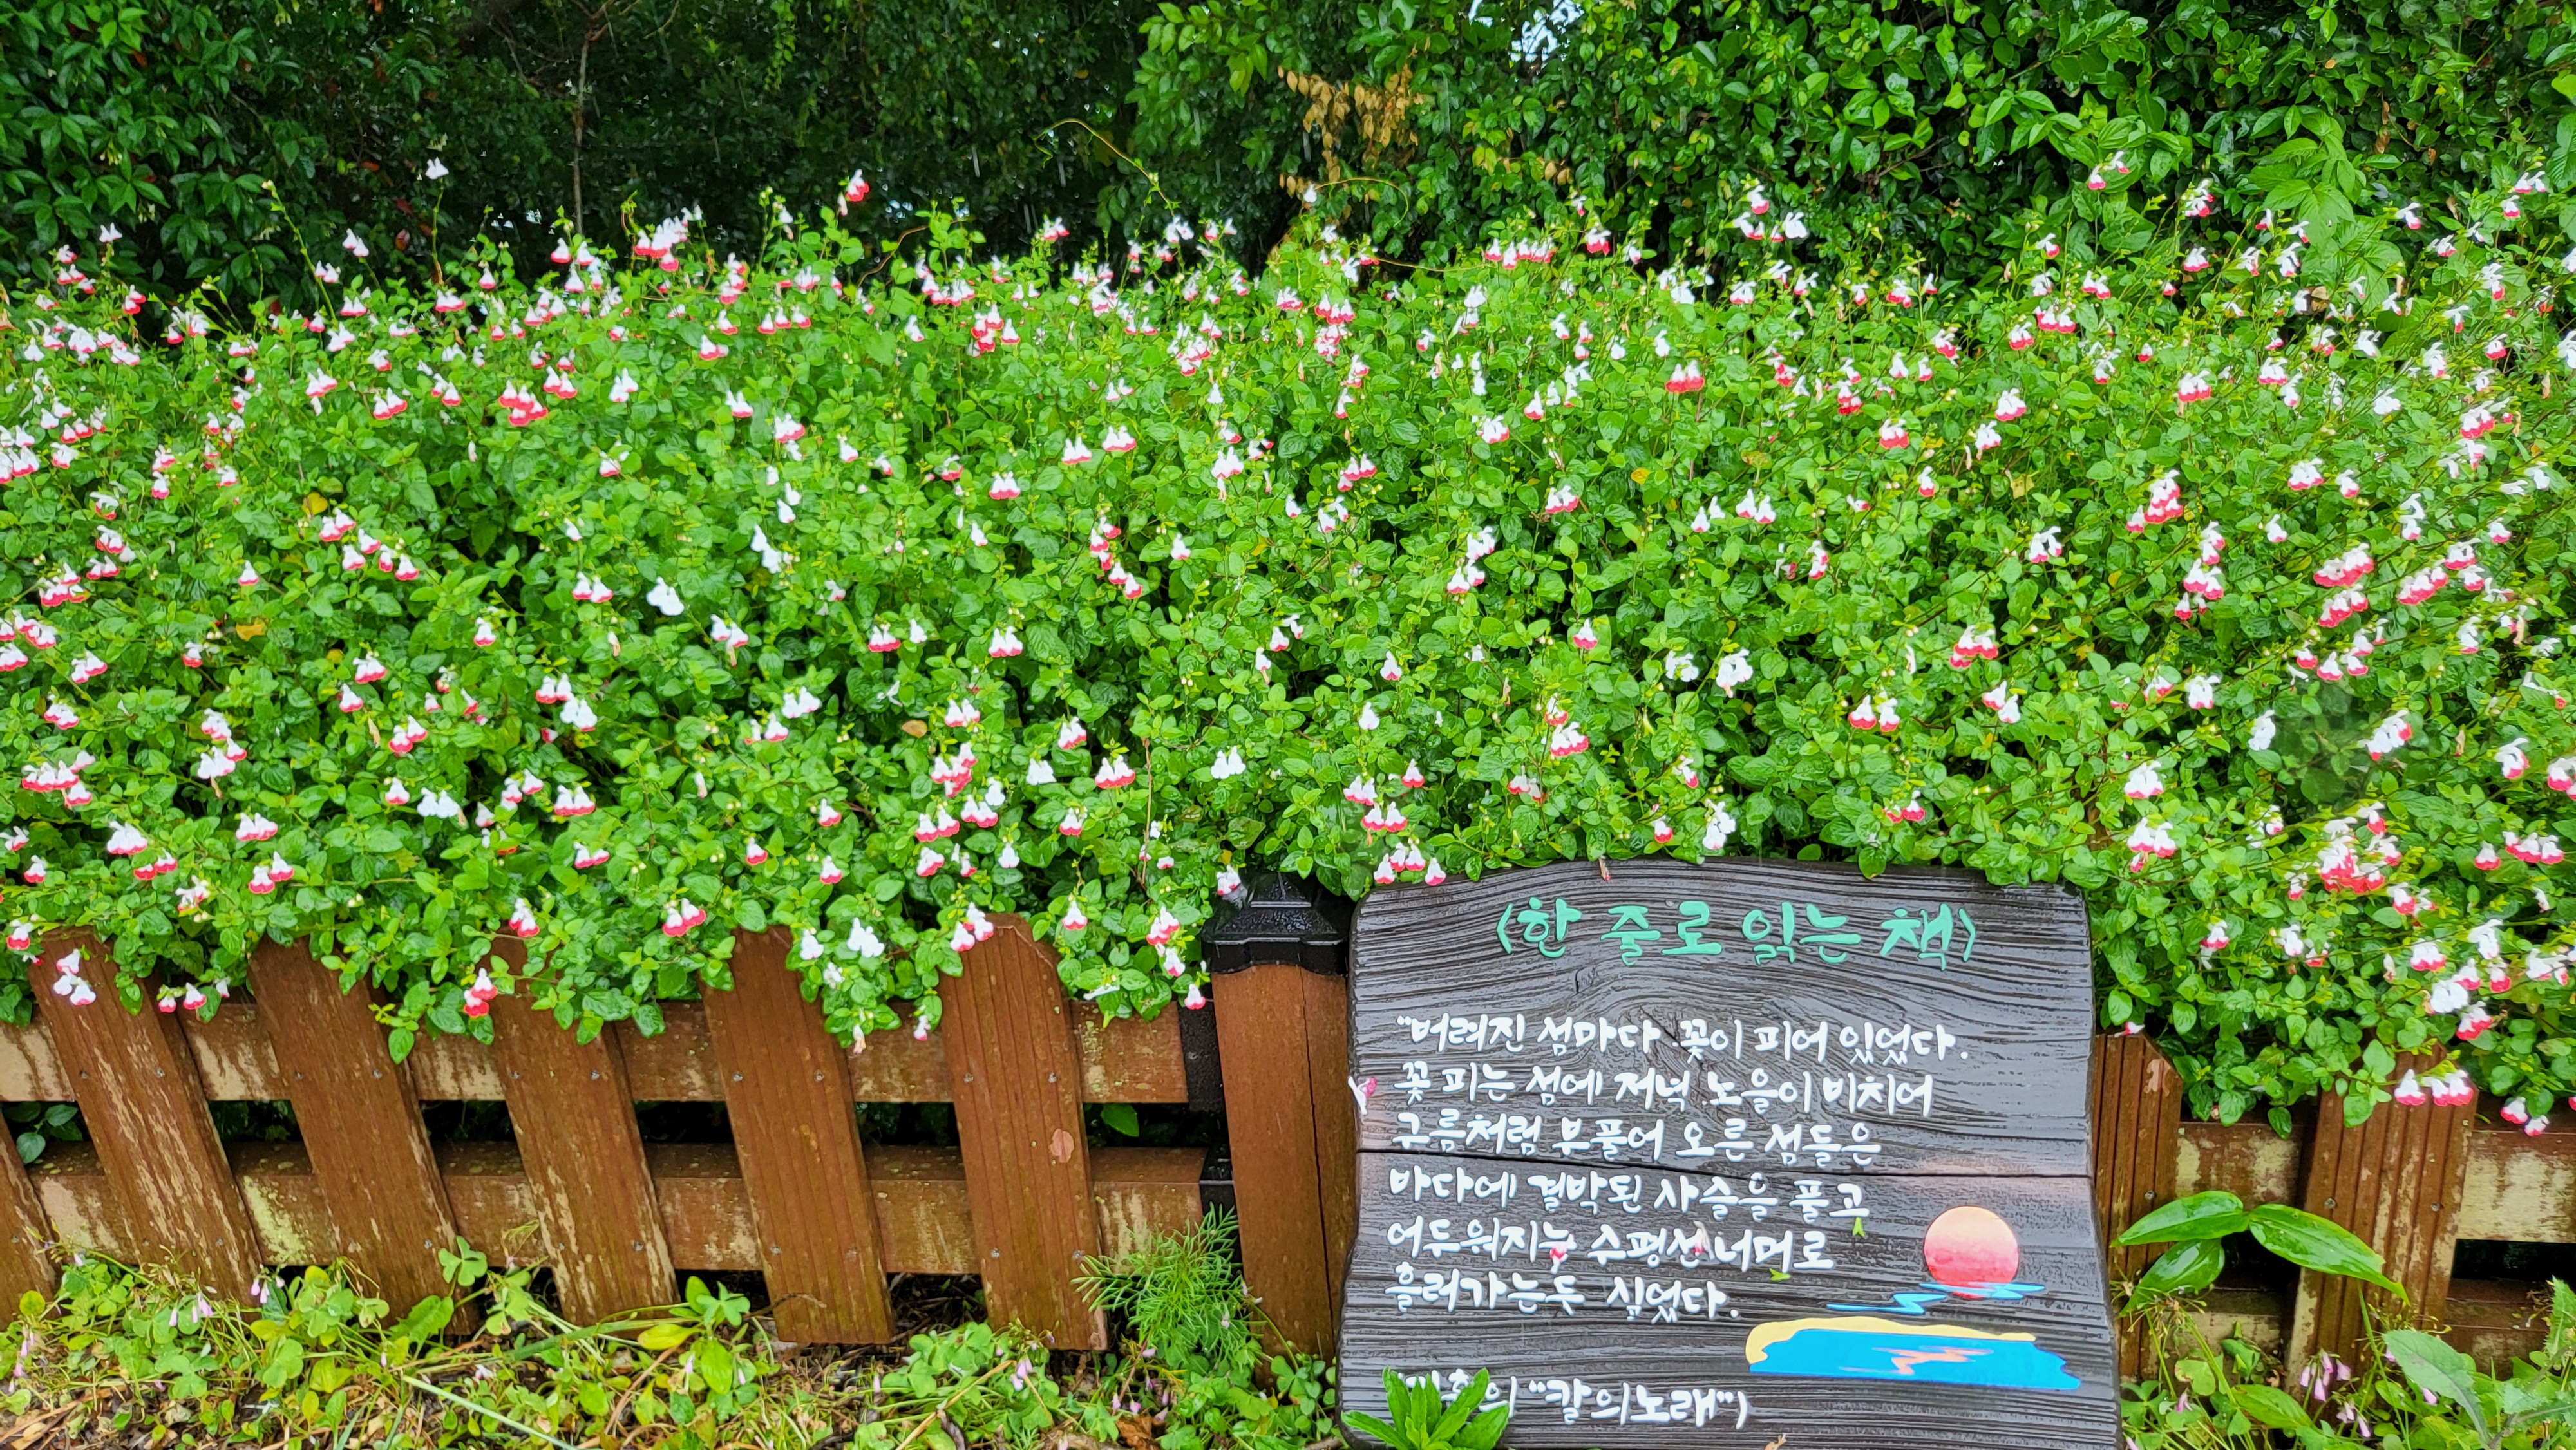 <한 줄로 읽는 책>
"버려진 섬마다 꽃이 피어 있었다.
꽃 피는 섬에 저녁 노을이 비치어
구름처럼 부풀어 오른 섬들은
바다에 결박된 사슬을 풀고
어두워지는 수평선 너머로
흘러가는듯 싶었다.
"칼의노래")